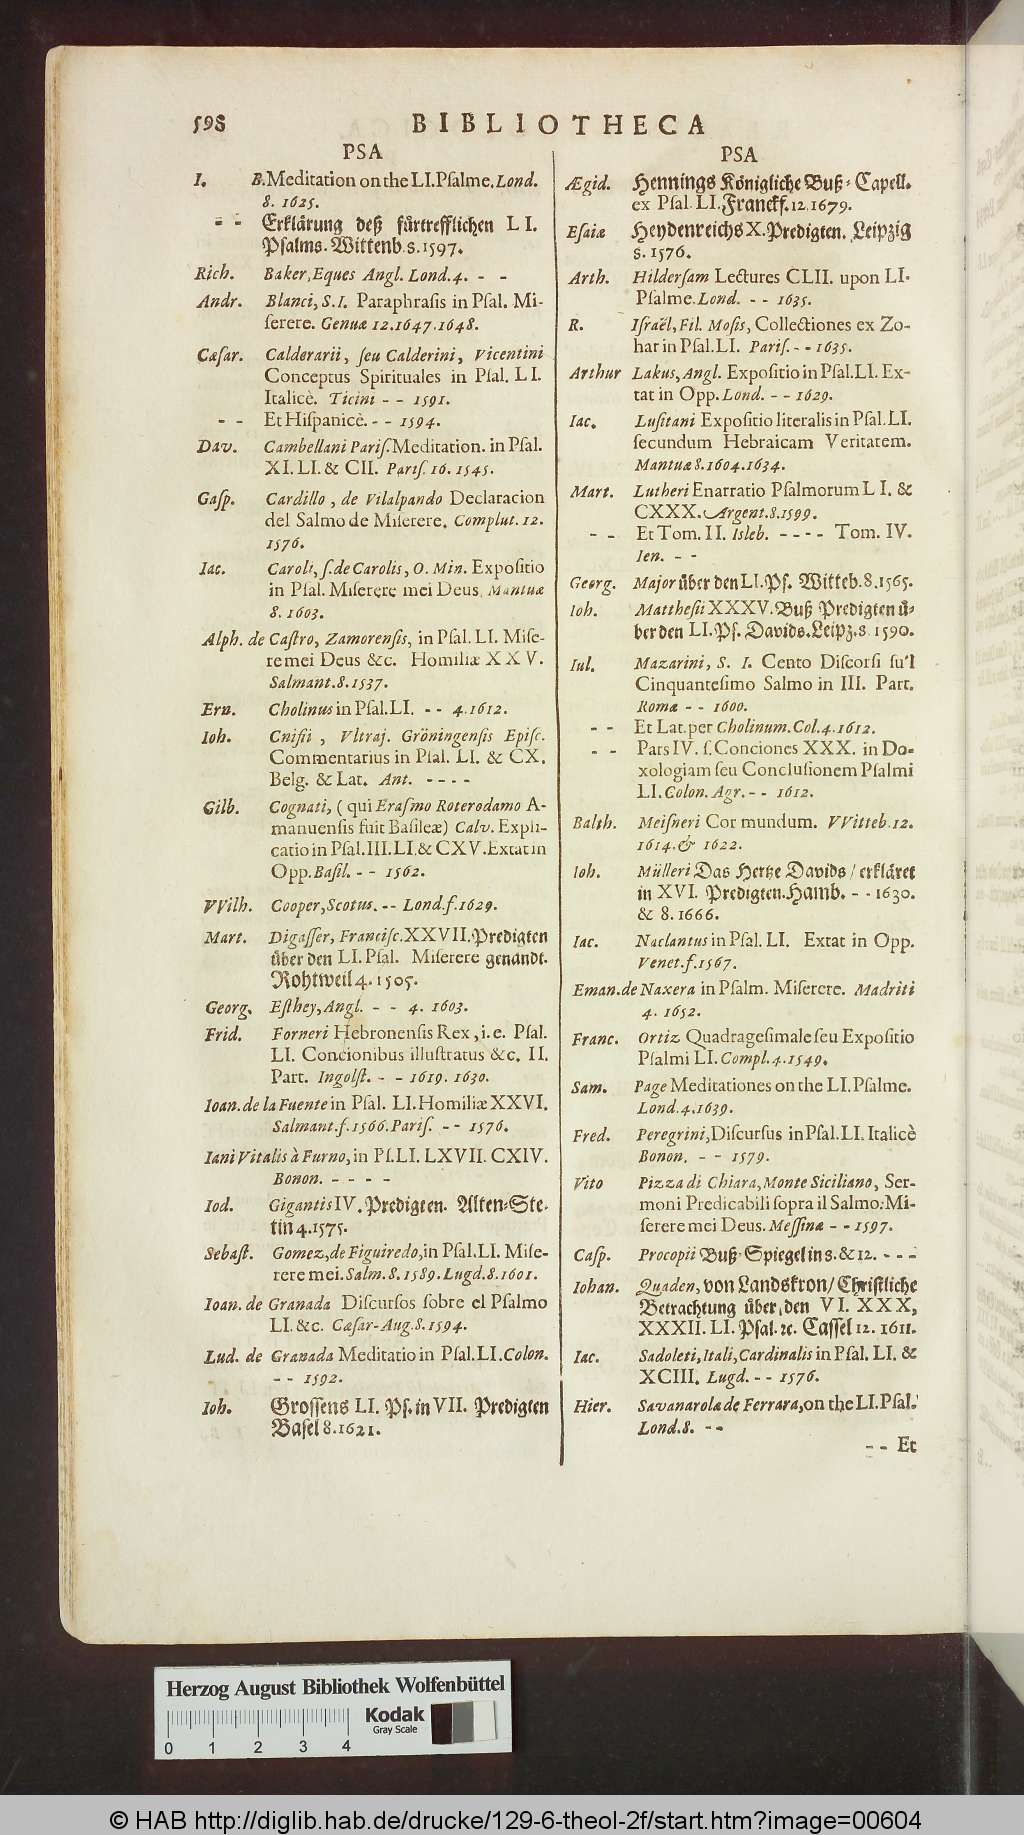 598
BIBLIOTHECA
PSA
I. B. Meditation on the LI. Psalme. Lond.
8. 1625.
- - Erklärung deß fürtrefflichen LI.
Psalms. Wittenb. 8. 1597.
Rich. Baker, Eques Angl. Lond. 4. - -
Andr. Blanci, S. I. Paraphrasis in Psal. Mi-
serere. Genuæ 12. 1647. 1648.
Cæsar. Calderarii, seu Calderini, Vicentini
Conceptus Spirituales in Psal. LI.
Italicè. Ticini - - 1591.
- - Et Hispanicè. - - 1594.
Dav. Cambellani Paris. Meditation. in Psal.
XI. LI. & CII. Paris. 16. 1545.
Gasp. Cardillo, de Vilalpando Declaracion
del Salmo de Miserere. Complut. 12.
1576.
Iac. Caroli, s. de Carolis, O. Min. Expositio
in Psal. Miserere mei Deus. Mantuæ
8. 1603.
Alph. de Castro, Zamorensis, in Psal. LI. Mise-
re mei Deus &c. Homiliæ XXV.
Salmant. 8. 1537.
Ern. Cholinus in Psal. LI. - - 4. 1612.
Ioh. Cnifii, Vltraj. Gröningensis Episc.
Commentarius in Psal. LI. & CX.
Belg. & Lat. Ant. - - - -
Gilb. Cognati, (qui Erasmo Roterodamo A-
manuensis fuit Basileæ) Calv. Expli-
catio in Psal. III. LI. & CXV. Extat in
Opp. Basil. - - 1562.
VVilh. Cooper, Scotus. - - Lond. f. 1629.
Mart. Digasser, Francisc. XXVII. Predigten
über den LI. Psal. Miserere genandt.
Rohtweil 4. 1505.
Georg. Esthey, Angl. - - 4. 1603.
Frid. Forneri Hebronensis Rex, i. e. Psal.
LI. Concionibus illustratus &c. II.
Part. Ingolst. - - 1619. 1630.
Ioan. de la Fuente in Psal. LI. Homiliæ XXVI.
Salmant. f. 1566. Paris. - - 1576.
Iani Vitalis à Furno, in Ps. LI. LXVII. CXIV.
Bonon. - - - -
Iod. Gigantis IV. Predigten. Alten-Ste-
tin 4. 1575.
Sebast. Gomez, de Figuiredo, in Psal. LI. Mise-
rere mei. Salm. 8. 1589. Lugd. 8. 1601.
Ioan. de Granada Discursos sobre el Psalmo
LI. &c. Cæsar-Aug. 8. 1594.
Lud. de Granada Meditatio in Psal. LI. Colon.
- - 1592.
Ioh. Grossens LI. Ps. in VII. Predigten
Basel 8. 1621.
PSA
Ægid. Hennings Königliche Buß-Capell.
ex Psal. LI. Franckf. 12. 1679.
Esaiæ Heydenreichs X. Predigten. Leipzig
8. 1576.
Arth. Hildersam Lectures CLII. upon LI.
Psalme. Lond. - - 1635.
R. Israël, Fil. Mosis, Collectiones ex Zo-
har in Psal. LI. Paris. - - 1635.
Arthur Lakus, Angl. Expositio in Psal. LI. Ex-
tat in Opp. Lond. - - 1629.
Iac. Lusitani Expositio literalis in Psal. LI.
secundum Hebraicam Veritatem.
Mantuæ 8. 1604. 1634.
Mart. Lutheri Enarratio Psalmorum LI. &
CXXX. Argent. 8. 1599.
- - Et Tom. II. Isleb. - - - - Tom. IV.
Ien. - -
Georg. Major über den LI. Ps. Witteb. 8. 1565.
Ioh. Matthesii XXXV. Buß Predigten ü-
ber den LI. Ps. Davids. Leipz. 8. 1590.
Iul. Mazarini, S. I. Cento Discorsi su'l
Cinquantesimo Salmo in III. Part.
Romæ - - 1600.
- - Et Lat. per Cholinum. Col. 4. 1612.
- - Pars IV. s. Conciones XXX. in Do-
xologiam seu Conclusionem Psalmi
LI. Colon. Agr. - - 1612.
Balth. Meisneri Cor mundum. VVitteb. 12.
1614. & 1622.
Ioh. Mülleri Das Hertze Davids / erkläret
in XVI. Predigten. Hamb. - - 1630.
& 8. 1666.
Iac. Naclantus in Psal. LI. Extat in Opp.
Venet. f. 1567.
Eman. de Naxera in Psalm. Miserere. Madriti
4. 1652.
Franc. Ortiz Quadragesimale seu Expositio
Psalmi LI. Compl. 4. 1549.
Sam. Page Meditationes on the LI. Psalme.
Lond. 4. 1639.
Fred. Peregrini, Discursus in Psal. LI. Italicè
Bonon. - - 1579.
Vito Pizza di Chiara, Monte Siciliano, Ser-
moni Predicabili sopra il Salmo: Mi-
serere mei Deus. Messinæ - - 1597.
Casp. Procopii Buß-Spiegel in 8. & 12. - - -
Iohan. Quaden, von Landskron / Christliche
Betrachtung über, den VI. XXX,
XXXII. LI. Psal. ꝛc. Cassel 12. 1611.
Iac. Sadoleti, Itali, Cardinalis in Psal. LI. &
XCIII. Lugd. - - 1576.
Hier. Savanarola de Ferrara, on the LI. Psal.
Lond. 8. - -
- - Et
Herzog August Bibliothek Wolfenbüttel
Kodak
Gray Scale
0 1 2 3 4
© HAB http://diglib.hab.de/drucke/129-6-theol-2f/start.htm?image=00604